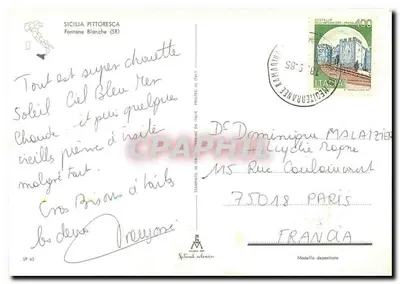 SICILIA PITTORESCA
Fontane Bianche (SR)
Tout est super chouette
Soleil Ciel Bleu Mer
Chaude et puis quelques
vieilles pierres à visiter
malgré tout.
Gros Bisous à toutes
les deux
Françoise
SP 62
400
MEDITERRANEE KAMARINA
Dr Dominique MALAIZIER
115 Rue Caulaincourt
75018 PARIS
FRANCIA
Modello depositato
CARTE